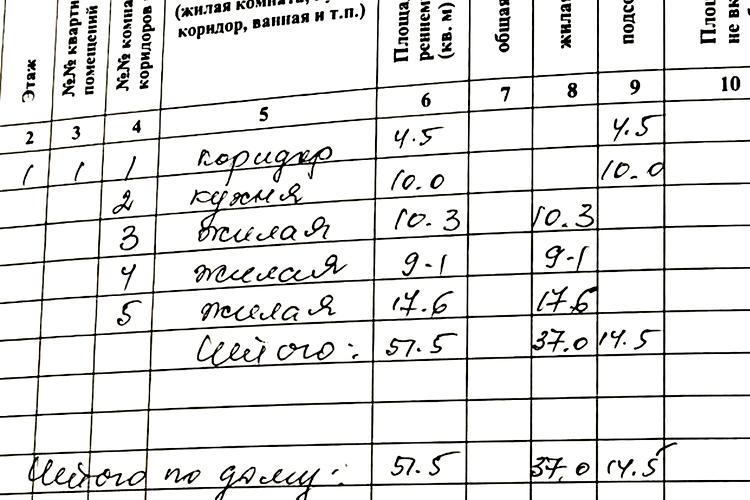 Этаж №№ кварти помещений №№ комна коридоров (жилая комната, коридор, ванная и т.п.) Площа реннем (кв. м) общая жилая подсо Площ не вк
2 3 4 5 6 7 8 9 10
1 1 1 коридор 4.5 4.5
2 кухня 10.0 10.0
3 жилая 10.3 10.3
4 жилая 9-1 9-1
5 жилая 17.6 17.6
Итого: 51.5 37.0 14.5
Итого по дому: 51.5 37.0 14.5